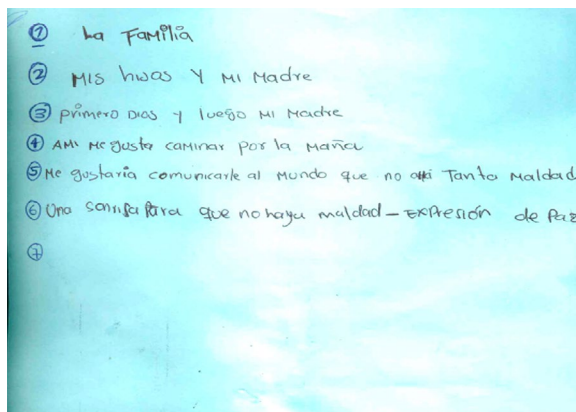 ① La Familia
② Mis hijas y mi Madre
③ primero Dios y luego Mi Madre
④ AMi Me gusta caminar por la Maña
⑤ Me gustaria comunicarle al Mundo que no Tanta Maldad
⑥ Una sonrisa Para que no haya maldad - Expresión de Paz
⑦